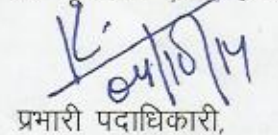 04/10/14
प्रभारी पदाधिकारी,